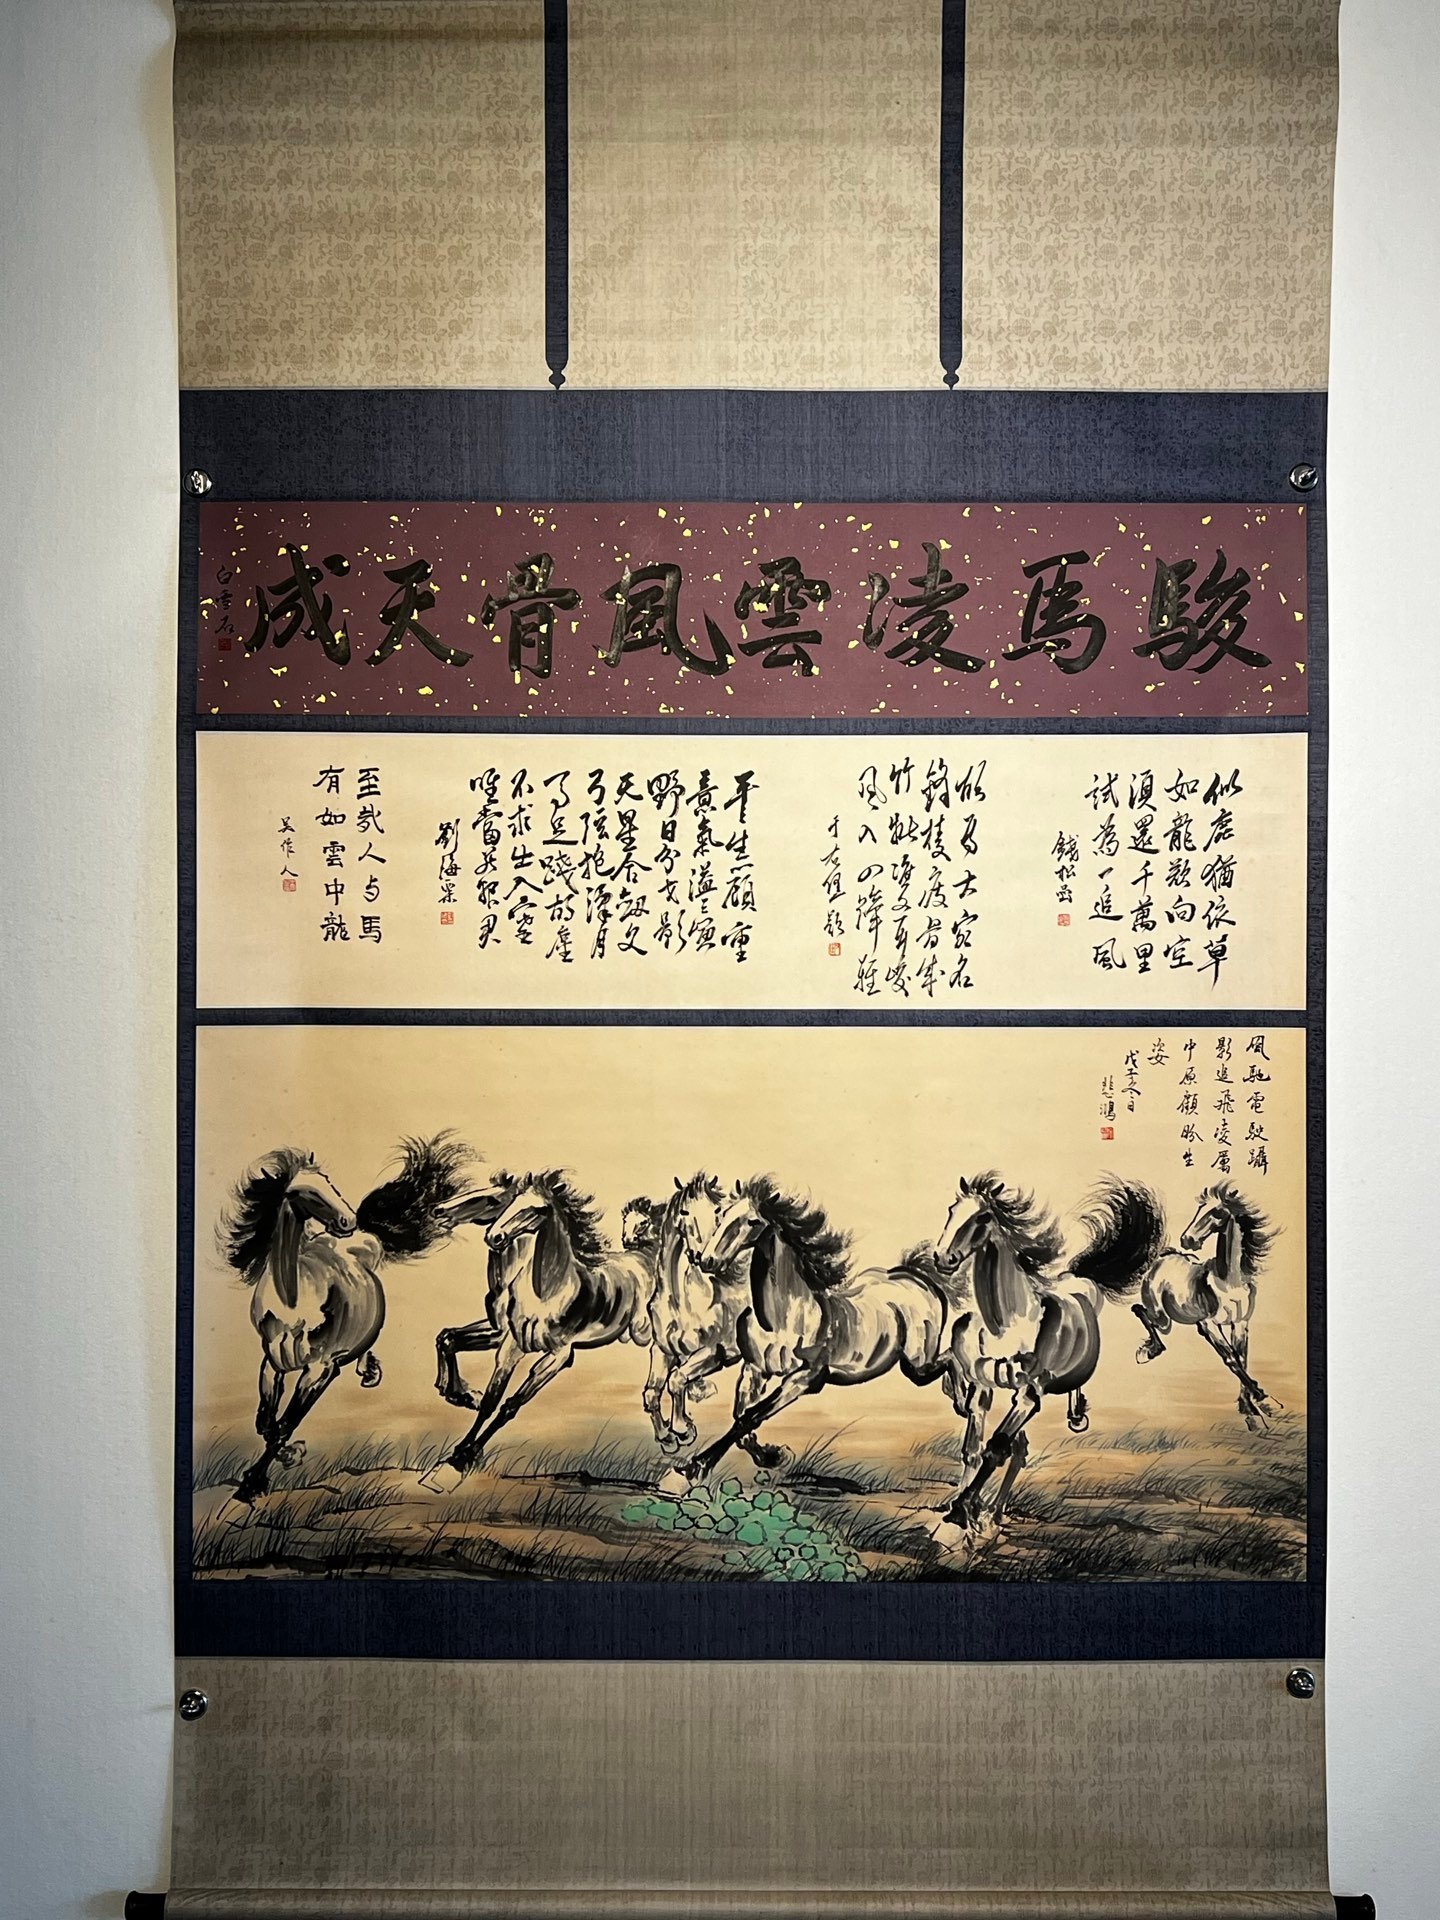 駿馬凌雲風骨天成
白雪石
似鹿猶依草
如龍欲向空
須還千萬里
試為一追風
錢松喦
胡馬大宛名
鋒棱瘦骨成
竹批雙耳峻
風入四蹄輕
于右任題
平生一顧重
意氣溢三軍
野日分戈影
天星合劍文
弓弦抱漢月
馬足踐胡塵
不求生入塞
唯當死報君
劉海粟
至哉人与馬
有如雲中龍
吳作人
風馳電駛躡
影追飛凌厲
中原顧盼生
姿
悲鴻